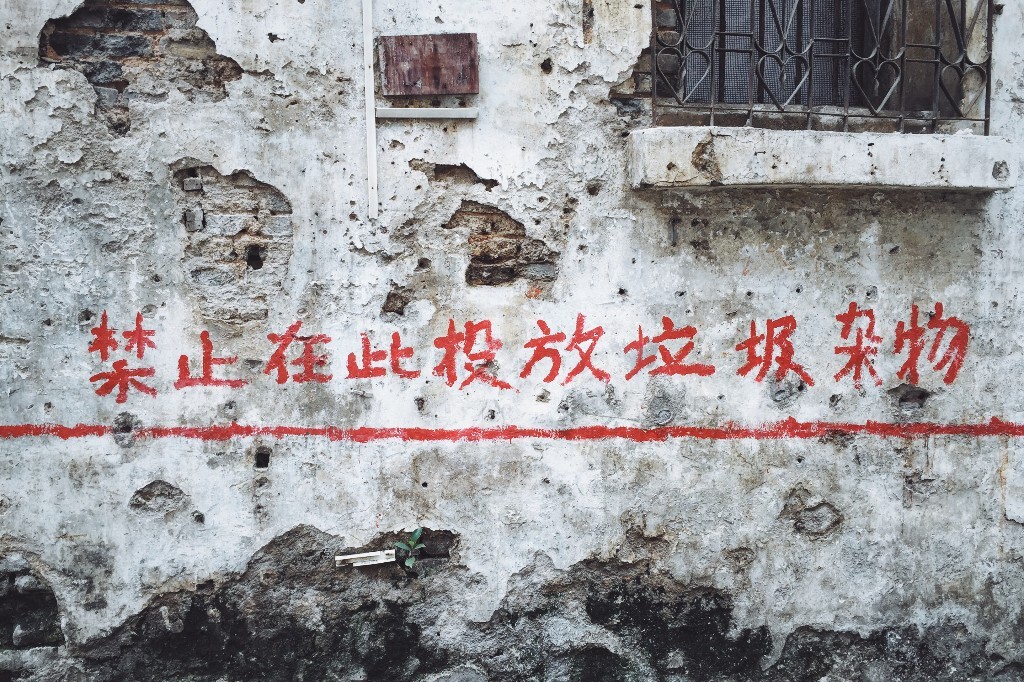 禁止在此投放垃圾杂物